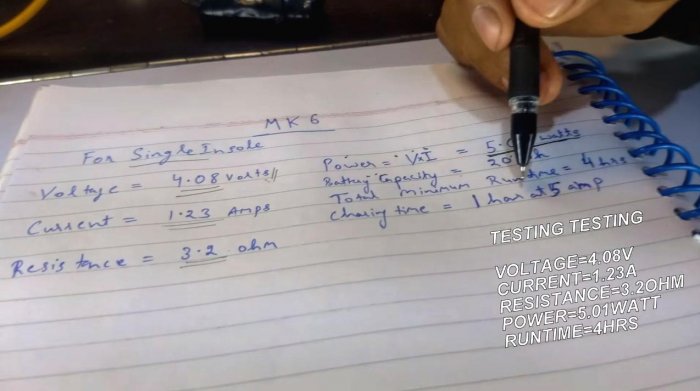 MK 6
For Single Insole
Voltage = 4.08 Volts
Current = 1.23 Amps
Resistance = 3.2 ohm
Power = VxI = 5.0 watts
Battery Capacity = 20
Total minimum Runtime = 4 hrs
Charing time = 1 hour at 5 amp
TESTING TESTING
VOLTAGE=4.08V
CURRENT=1.23A
RESISTANCE=3.2OHM
POWER=5.01WATT
RUNTIME=4HRS